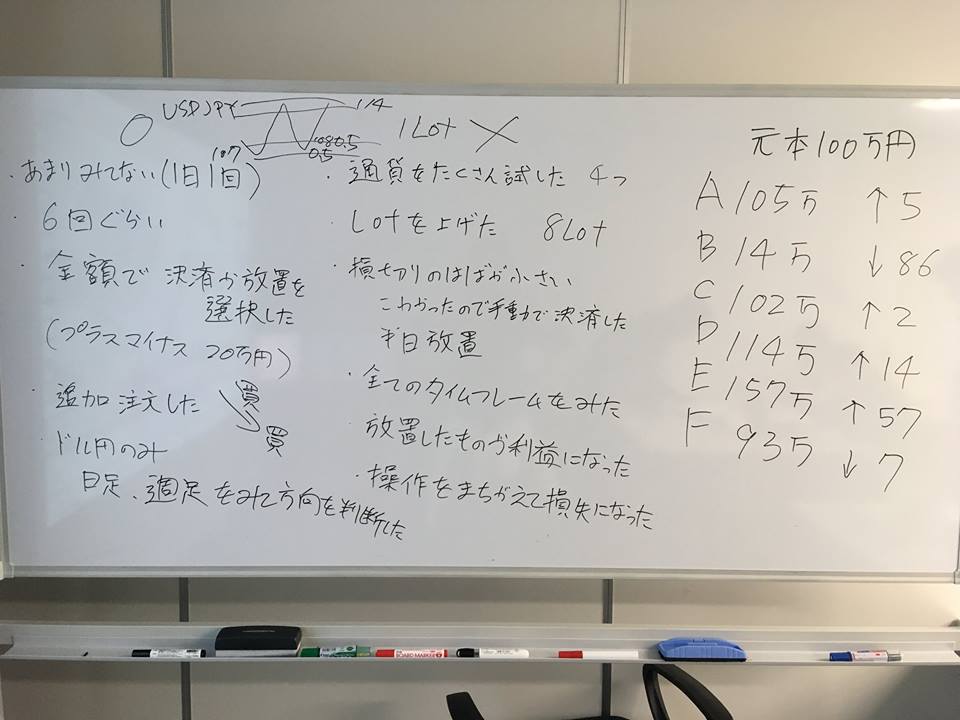 ○ USDJPY 114 1Lot ×
107 108 0.5
0.5
・あまりみてない(1日1回)
・6回ぐらい
・金額で決済か放置を
選択した
(プラスマイナス 20万円)
・追加注文した 買
買
ドル円のみ
日足、週足をみて方向を判断した
・通貨をたくさん試した 4つ
・Lotを上げた 8Lot
・損切りのはばが小さい
こわかったので手動で決済した
半日放置
・全てのタイムフレームをみた
放置したものが利益になった
・操作をまちがえて損失になった
元本100万円
A 105万 ↑5
B 14万 ↓86
C 102万 ↑2
D 114万 ↑14
E 157万 ↑57
F 93万 ↓7
BOARD MARKER